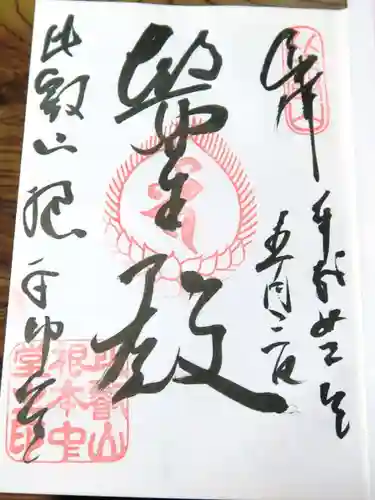 奉拝
平成廿二年
五月二日
醫王殿
比叡山根本中堂
比叡山
根本中
堂之印